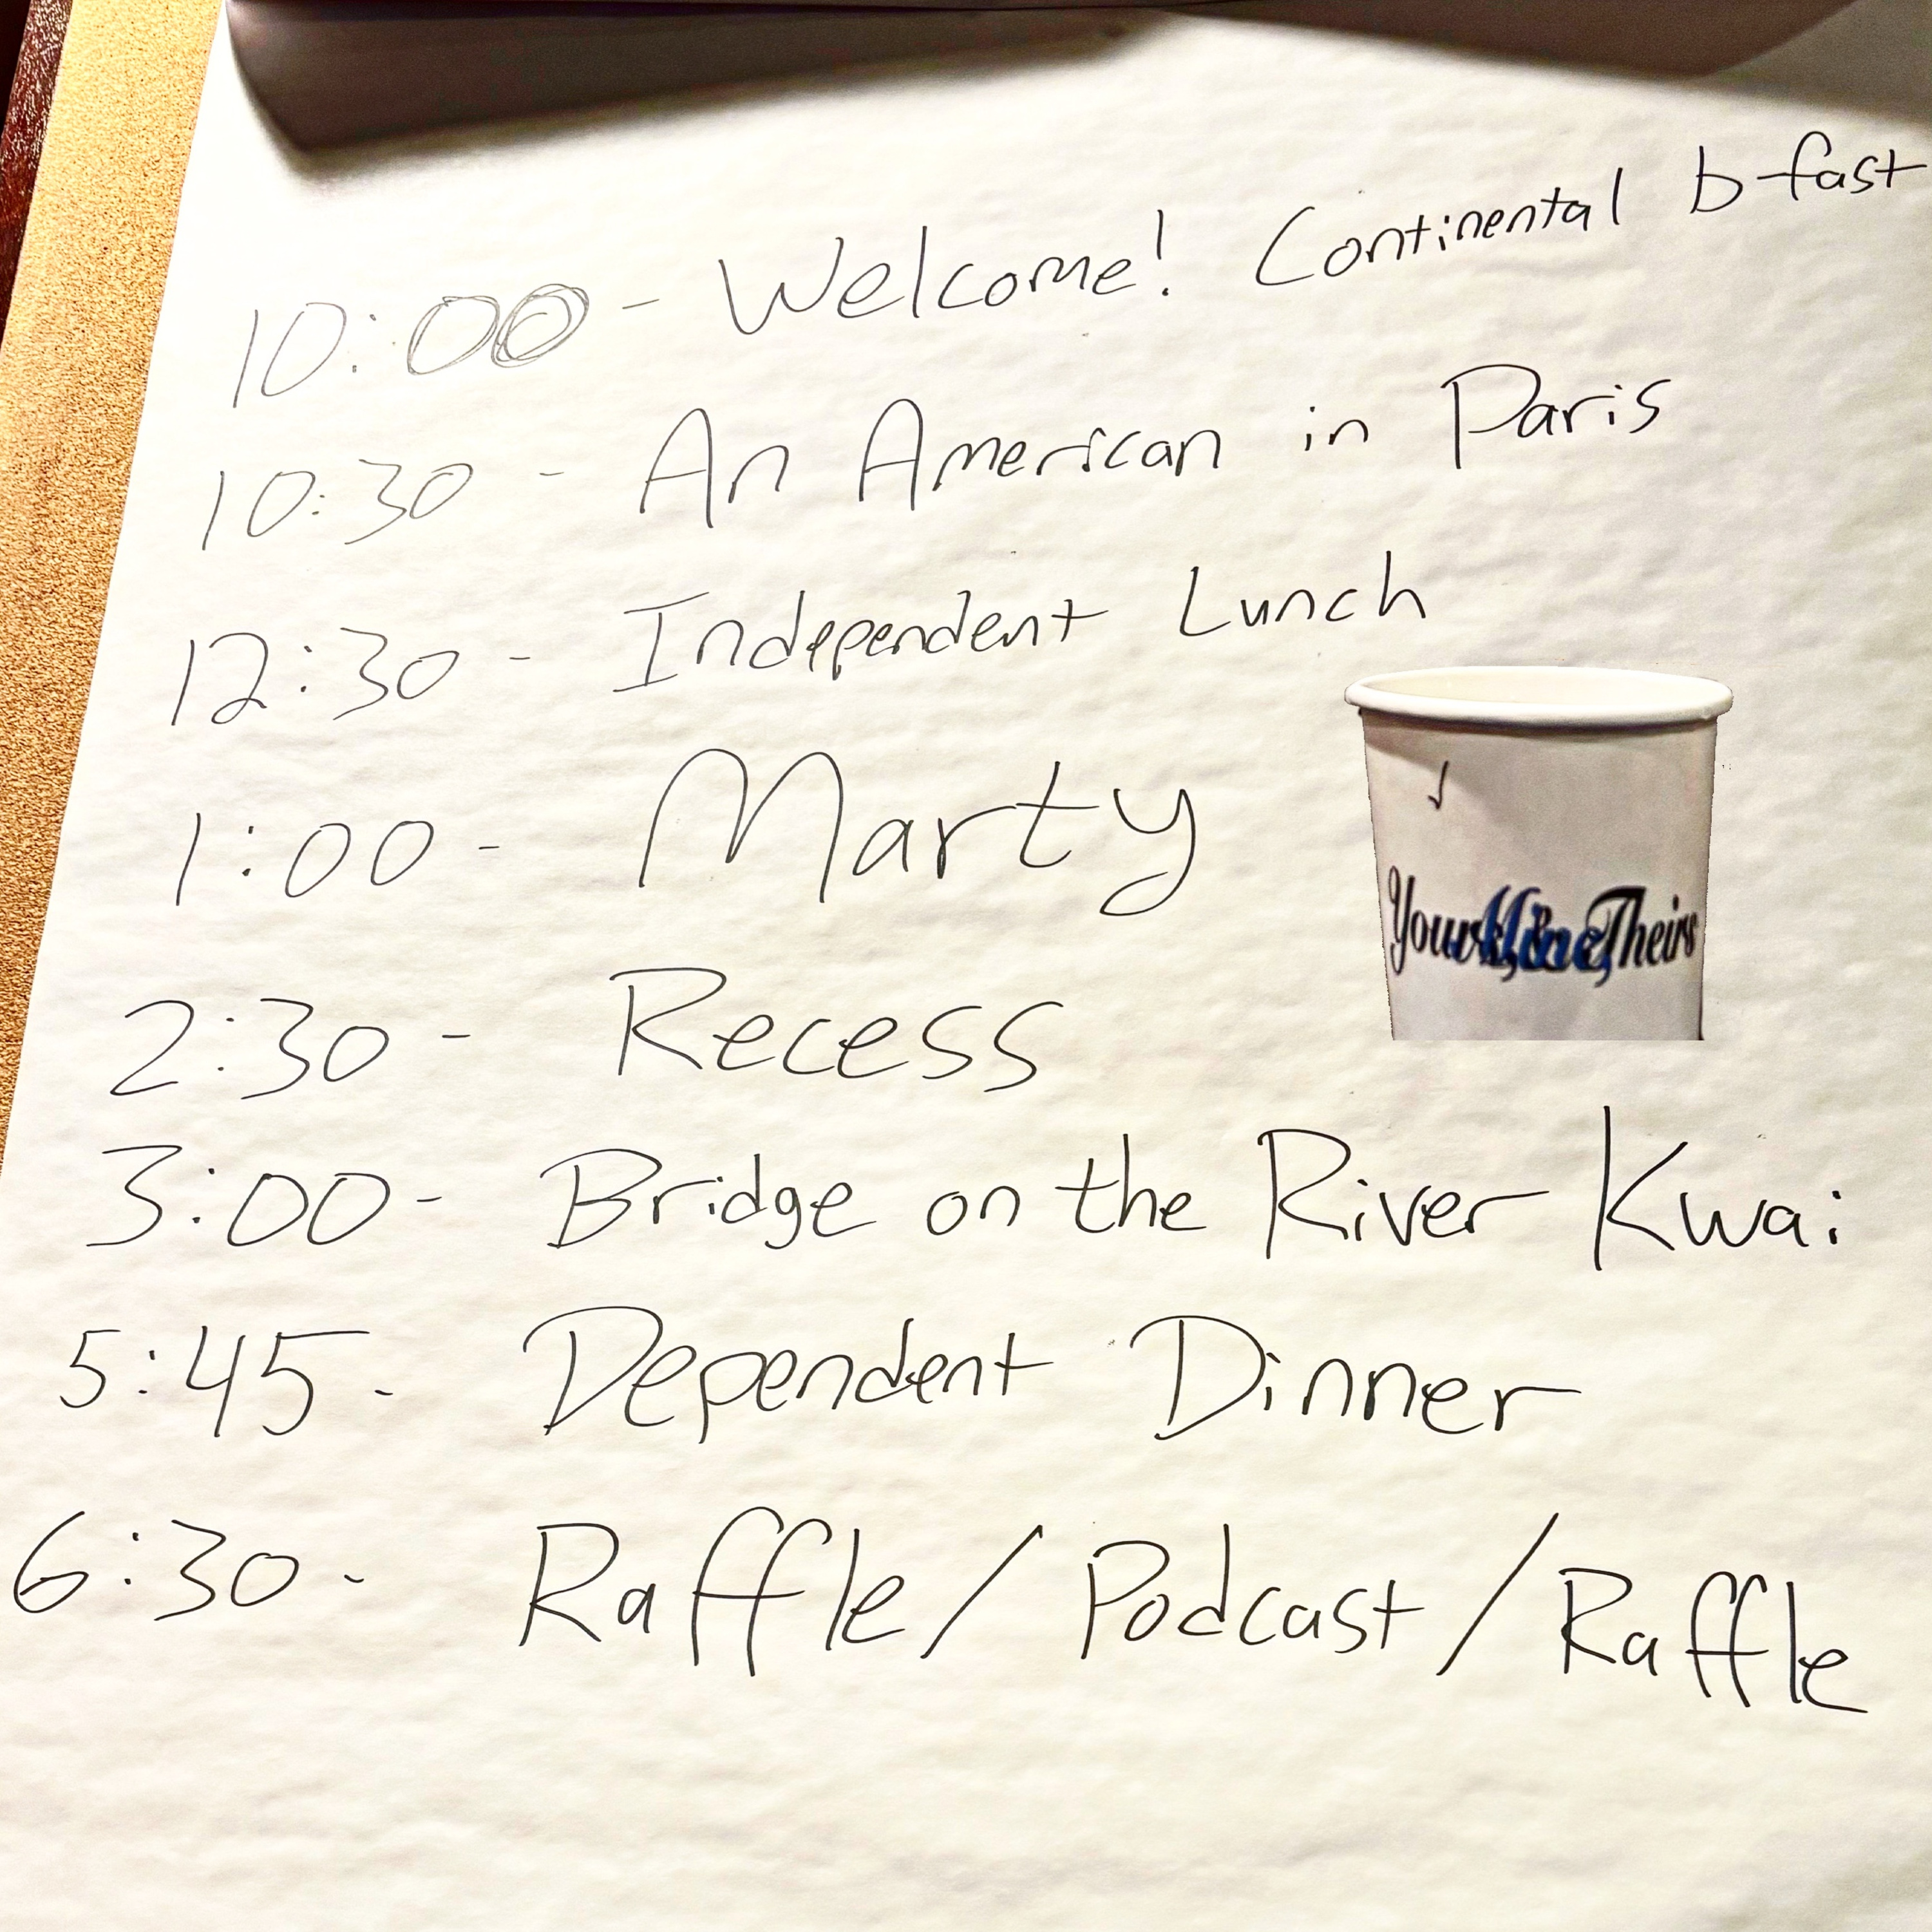 10:00 - Welcome! Continental b-fast
10:30 - An American in Paris
12:30 - Independent Lunch
1:00 - Marty
Yours, Mine, & Theirs
2:30 - Recess
3:00 - Bridge on the River Kwai
5:45 - Dependent Dinner
6:30 - Raffle / Podcast / Raffle